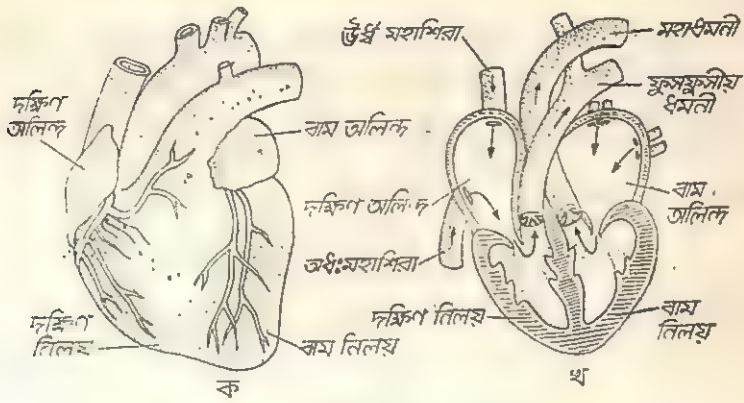 দক্ষিণ
অলিন্দ
বাম অলিন্দ
দক্ষিণ
নিলয়
বাম নিলয়
ক
ঊর্ধ্ব মহাশিরা
মহাধমনী
ফুসফুসীয়
ধমনী
দক্ষিণ অলিন্দ
বাম
অলিন্দ
অধঃমহাশিরা
দক্ষিণ নিলয়
বাম
নিলয়
খ